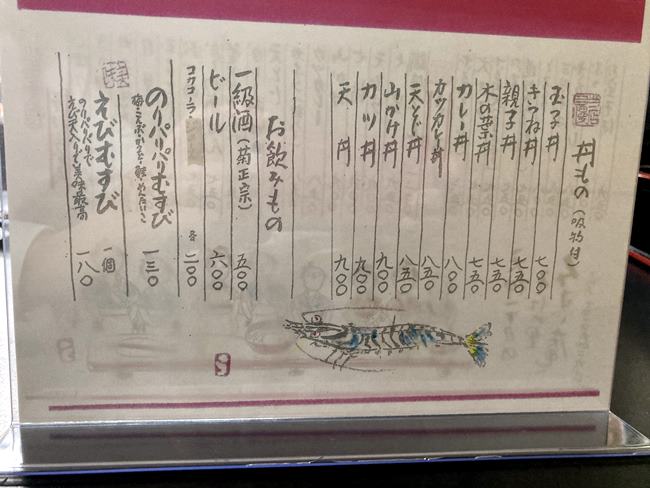 丼もの(吸物付)
玉子丼 七〇〇
きつね丼 七五〇
親子丼 七五〇
木の葉丼 七五〇
カレー丼 八〇〇
カツカレー丼 八五〇
天とじ丼 八五〇
山かけ丼 九〇〇
カツ丼 九〇〇
天丼 九〇〇
お飲みもの
一級酒(菊正宗) 五〇〇
ビール 六〇〇
コカコーラ・ 各二〇〇
のりパリパリむすび 一三〇
えびむすび 一個 一八〇
のりパリパリで
えび天入りで美味最高